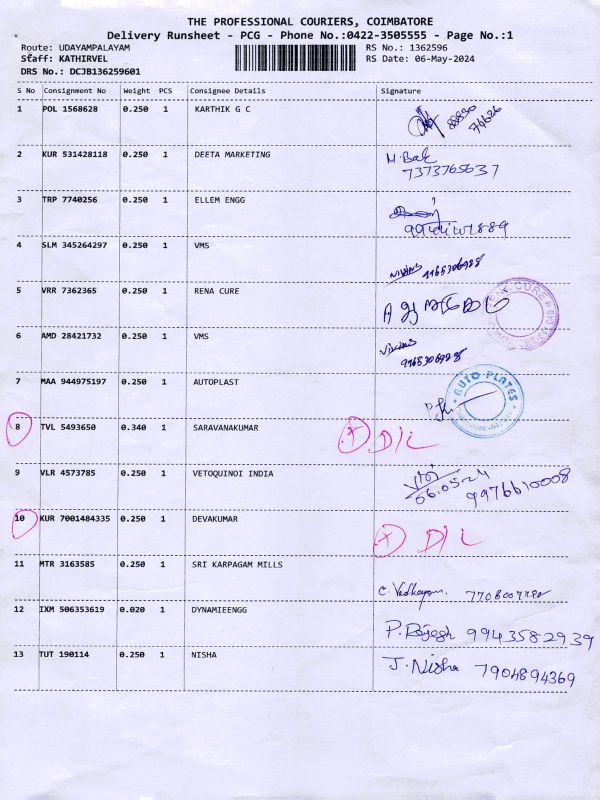 THE PROFESSIONAL COURIERS, COIMBATORE
Delivery Runsheet - PCG - Phone No.:0422-3505555 - Page No.:1
Route: UDAYAMPALAYAM RS No.: 1362596
Staff: KATHIRVEL RS Date: 06-May-2024
DRS No.: DCJB136259601
S No Consignment No Weight PCS Consignee Details Signature
1 POL 1568628 0.250 1 KARTHIK G C
2 KUR 531428118 0.250 1 DEETA MARKETING
7373765637
3 TRP 7740256 0.250 1 ELLEM ENGG
4 SLM 345264297 0.250 1 VMS
5 VRR 7362365 0.250 1 RENA CURE
6 AMD 28421732 0.250 1 VMS
7 MAA 944975197 0.250 1 AUTOPLAST
AUTO-PLATES
8 TVL 5493650 0.340 1 SARAVANAKUMAR D/L
9 VLR 4573785 0.250 1 VETOQUINOI INDIA
06.05.24 9976610008
10 KUR 7001484335 0.250 1 DEVAKUMAR D/L
11 MTR 3163585 0.250 1 SRI KARPAGAM MILLS
12 IXM 506353619 0.020 1 DYNAMIEENGG
9943582939
13 TUT 190114 0.250 1 NISHA J. Nisha 7904894369